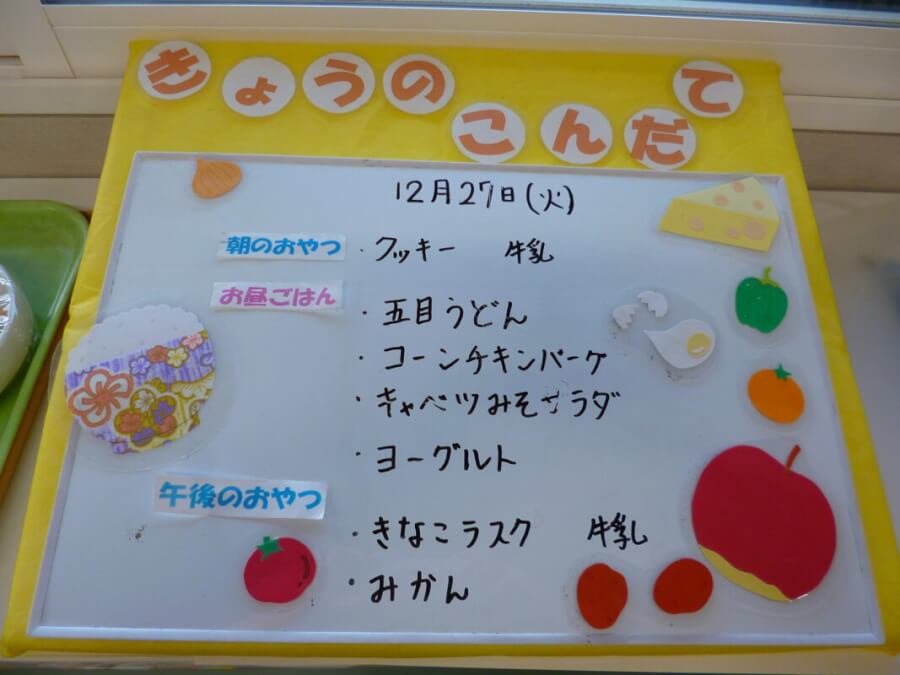 きょうの
こんだて
12月27日(火)
朝のおやつ ・クッキー 牛乳
お昼ごはん
・五目うどん
・コーンチキンバーグ
・キャベツみそサラダ
・ヨーグルト
午後のおやつ
・きなこラスク 牛乳
・みかん